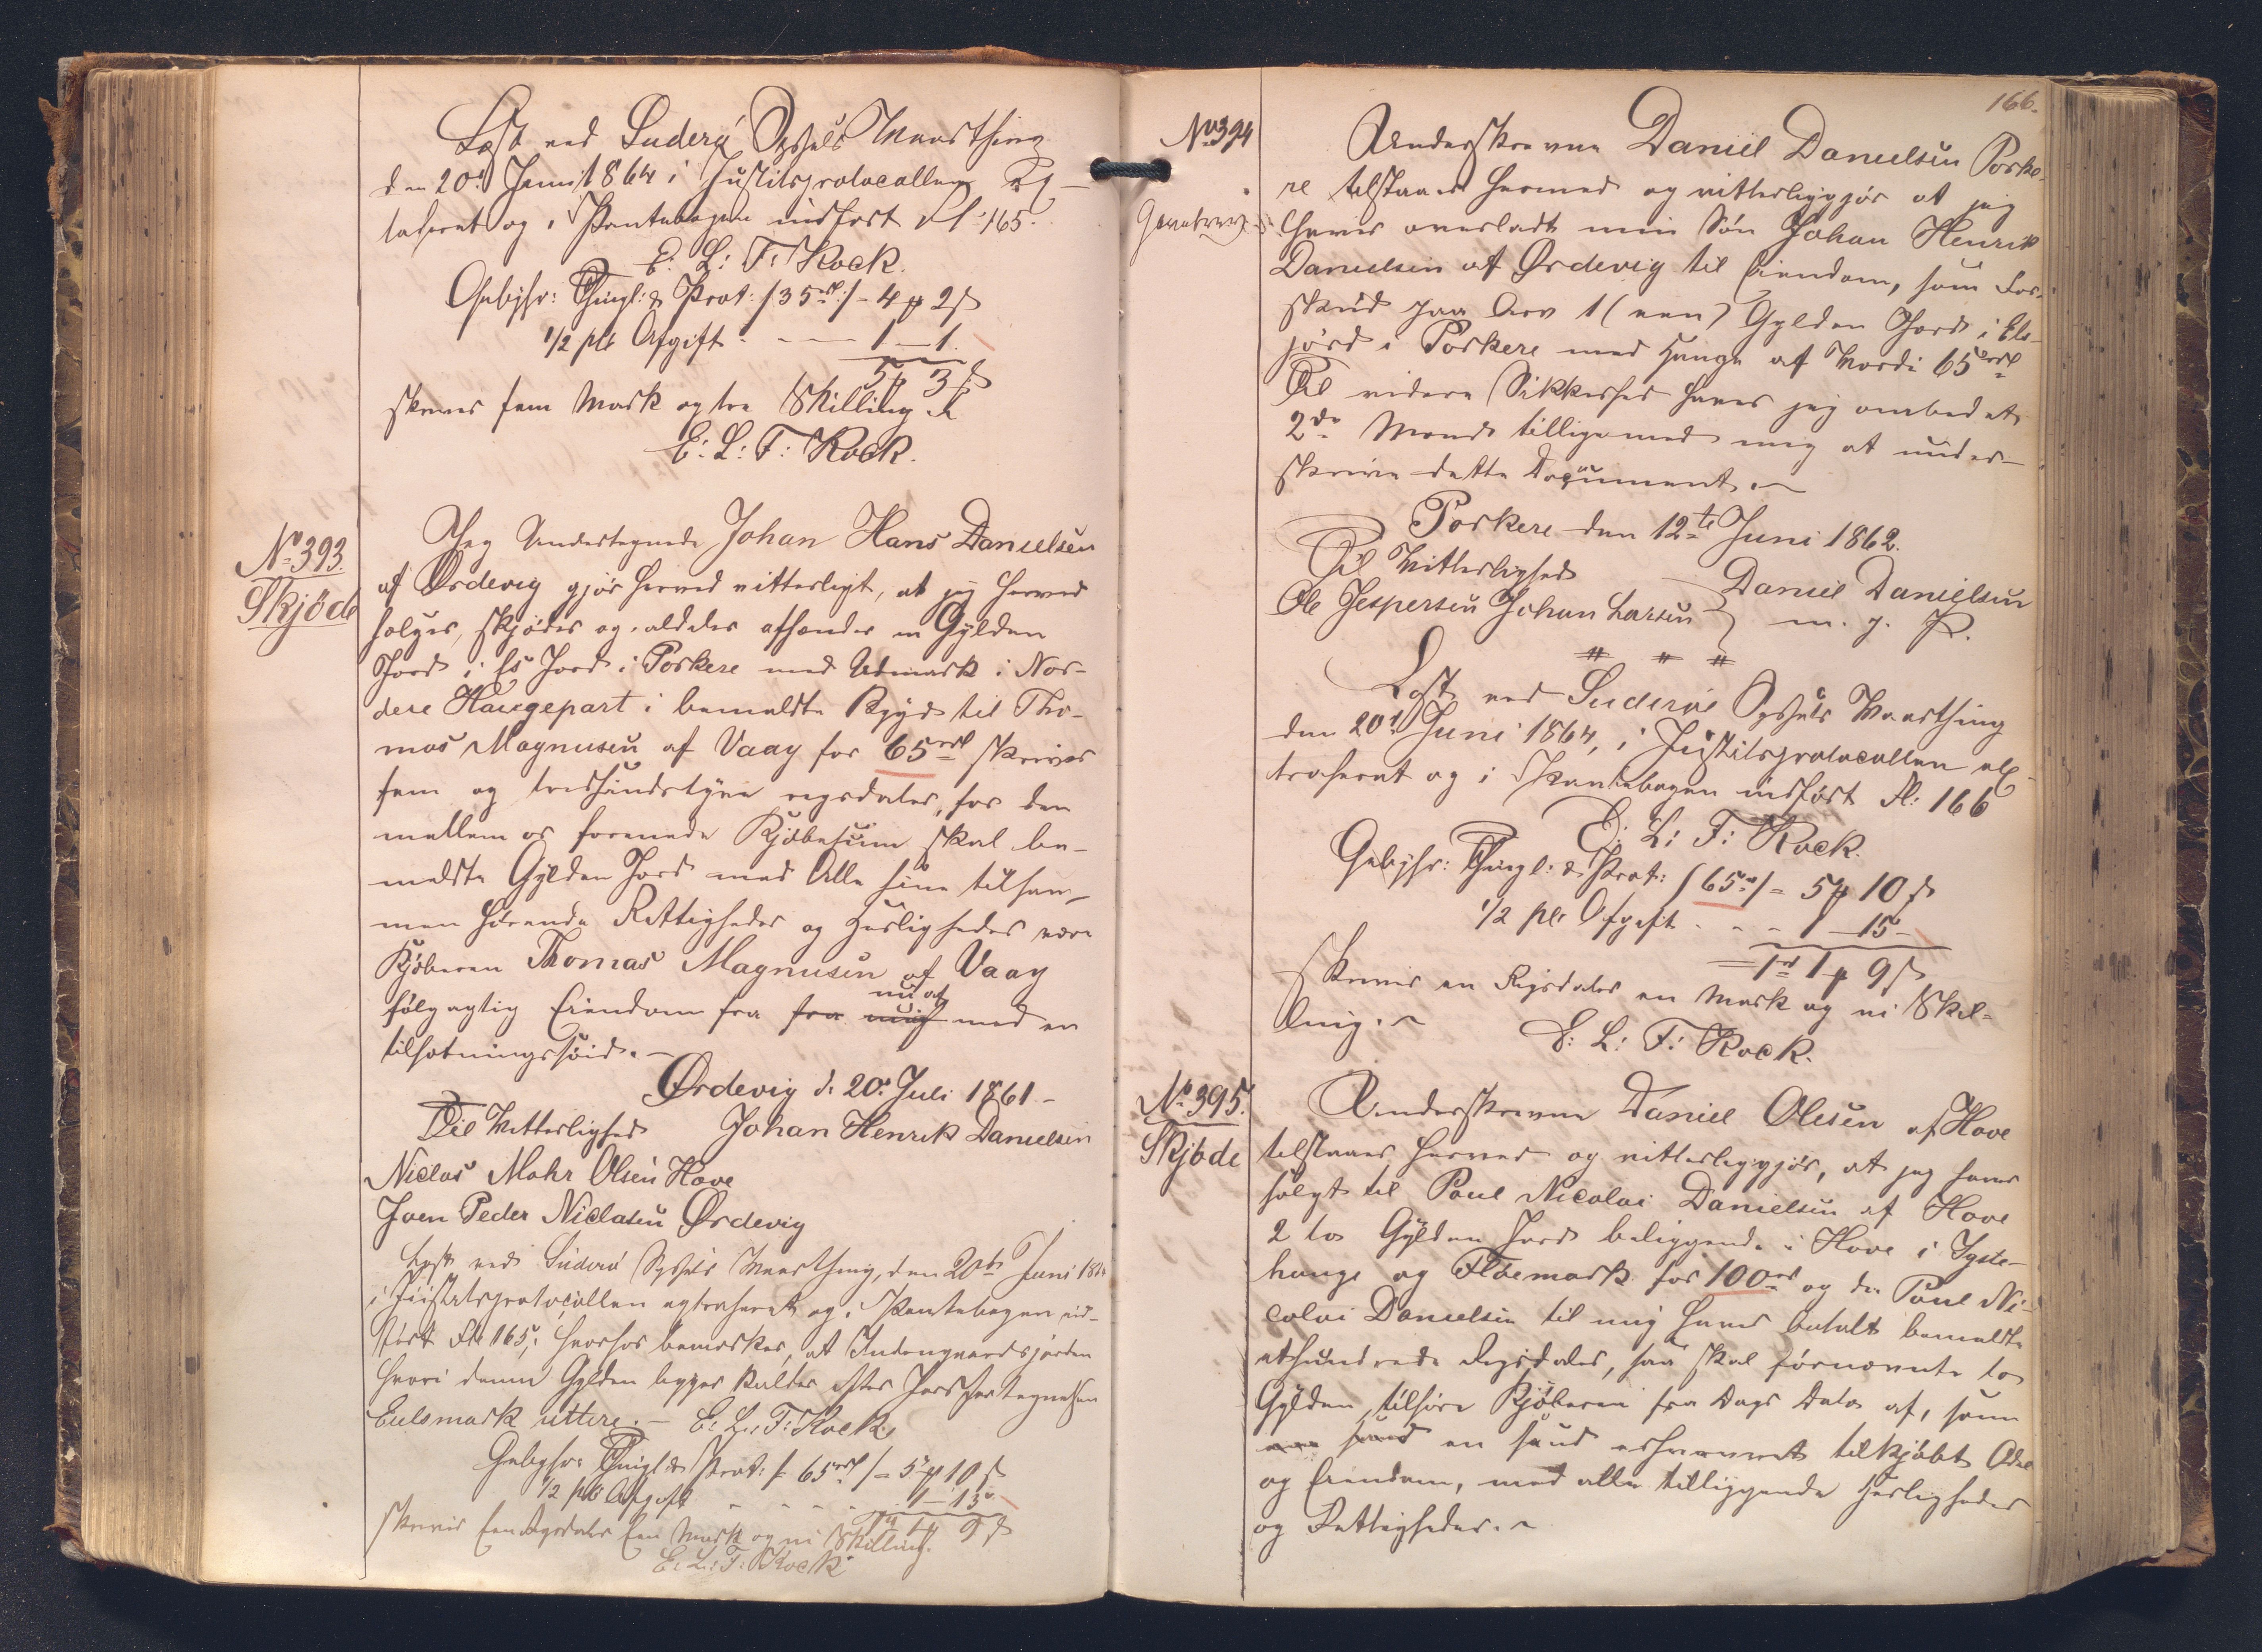 Læst ved Suderø Syssels Vaarthing
den 20d Juni 1864 i Justitsprotocollen Ex-
traheret og i Pantebogen indført Fol 165.
E: L: F: Kock.
Gebyhr: Thingl: & Prot: /: 35 rd :/ - 4 ℳ 2 ß
1/2 pCt Afgift - - - 1 - 1.
5 ℳ 3 ß
skrives fem Mark og tre Skilling
E: L: F: Kock.
No 393.
Skjöde
Jeg Undertegnede Johan Hans Danielsen
af Ørdevig gjør herved vitterligt, at jeg herved
sælger, skjøder og aldeles afhænder en Gylden
Jord i Es Jord i Porkere med Udmark i Nor-
dere Haugepart i bemeldte Bygd til Tho-
mas Magnusen af Vaag for 65 rd skriver
fem og tredsindstyve rigsdaler, for den
mellem os forenede Kjøbesum skal be-
meldte Gylden Jord med Alle sine tilsam-
men hørende Rettigheder og Herligheder være
Kjøberen Thomas Magnusen af Vaag
følgagtig Eiendom fra fra mig nu af med en
tilsætningssöid.
Ørdevig d: 20d Juli 1861 -
Til Vitterlighed Johan Henrik Danielsen
Niclas Mohr Olsen Hove
Joen Peder Niclasen Ørdevig
Læst ved Suderø Syssels Vaarthing, den 20de Juni 1864
i Justitsprotocollen extraheret og i Pantebogen ind-
ført Fol 165, hvorhos bemærkes, at Indengaardsjorden
hvori denne Gylden ligger kaldes efter Jordfortegnelsen
Eulsmark uttere. - E: L: F: Kock
Gebyhr: Thingl: & Prot: /: 65 rd :/ = 5 ℳ 10 ß
1/2 pCt Afgift - - - - 1 - 15 -
1 rd 1 ℳ 9 ß
skrives Een Rigsdaler Een Mark og ni Skilling.
E: L: F: Kock
166.
No 394
Gavebrev
Underskrevne Daniel Danielsen Porke-
re tilstaaer hermed og vitterliggjør at jeg
haver overladt min Søn Johan Henrik
Danielsen af Ørdevig til Eiendom, som For-
skud paa Arv 1 (een) Gylden Jord i Els-
jørd i Porkere med Hauge af Værdi 65 rd
Til videre Sikkerhed haver jeg ombedet
2de Mænd tilligemed mig at under-
skrive dette Document.
Porkere den 12te Juni 1862.
Til Vitterlighed
Ole Jespersen Johan Larsen } Daniel Danielsen
m. p. P.
Læst ved Suderøe Syssels Vaarthing
den 20d Juni 1864, i Justitsprotocollen ex-
traheret og i Pantebogen indført Fl: 166
E: L: F: Kock.
Gebyhr: Thingl: & Prot: /: 65 rd :/ = 5 ℳ 10 ß
1/2 pCt Afgift - - - 1 - 15 -
= 1 rd 1 ℳ 9 ß
skrives en Rigsdaler en Mark og ni Skil-
ling.
E: L: F: Kock.
No 395.
Skjöde
Underskrevne Daniel Olesen af Hove
tilstaaer herved og vitterliggjør, at jeg haver
solgt til Poul Nicolai Danielsen af Hove
2 to Gylden Jord beliggende i Hove i Syste-
hauge og Fløemark for 100 rd og da Poul Ni-
colai Danielsen til mig haver betalt bemeldte
ethundrede Rigsdaler, saa skal fornævnte to
Gylden tilhøre Kjøberen fra Dags Dato af, som
en sand erhvervet tilkjøbt Odel
og Eiendom, med alle tilliggende Herligheder
og Rettigheder.